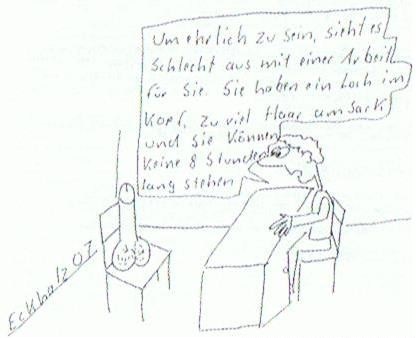 Um ehrlich zu sein, sieht es
schlecht aus mit einer Arbeit
für Sie. Sie haben ein Loch im
Kopf, zu viel Haar am Sack
und Sie können
keine 8 Stunden
lang stehen
Eckholz 07